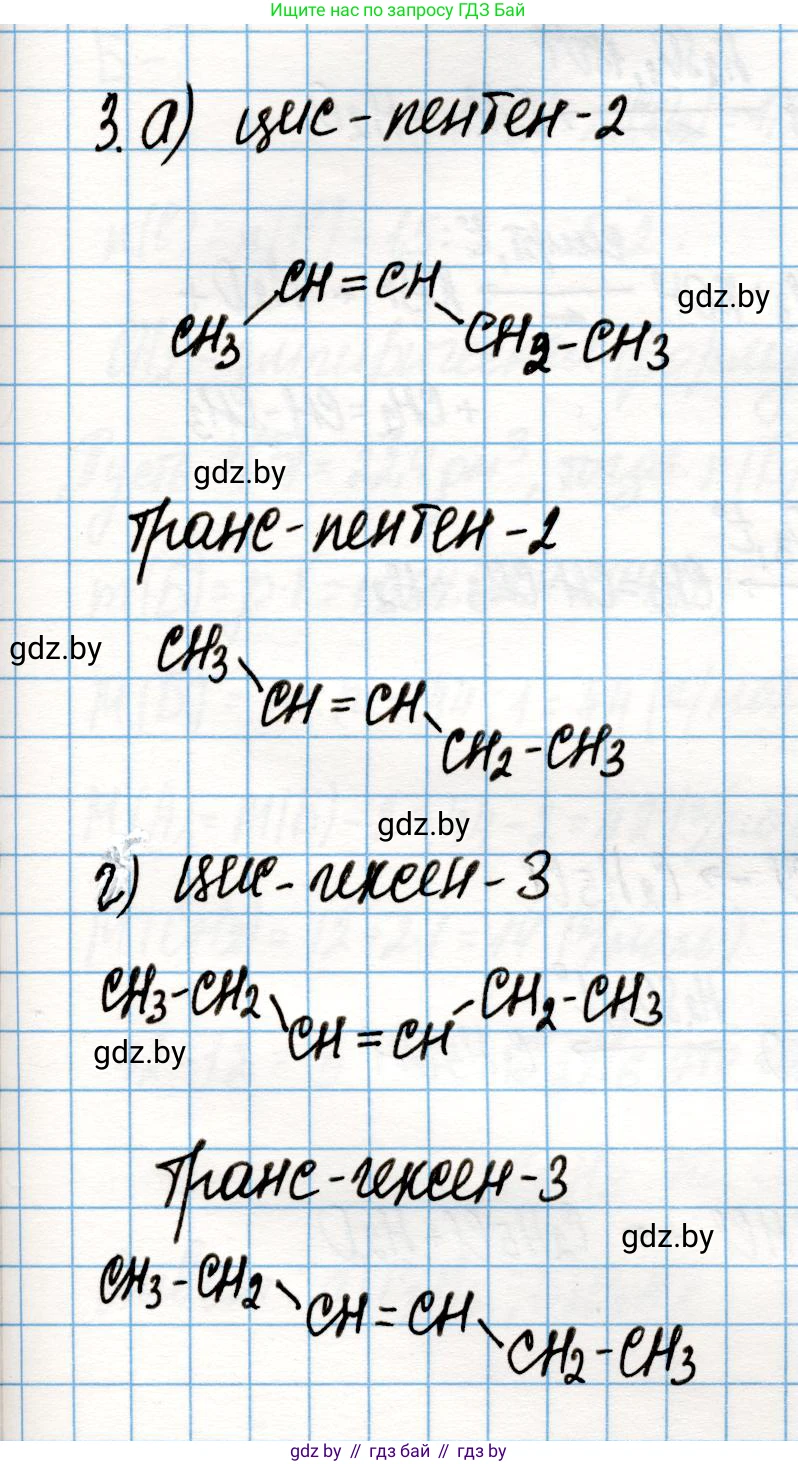 Ищите нас по запросу ГДЗ Бай
3. а) цис - пентен - 2
CH = CH
gdz.by
CH3 CH2 - CH3
gdz.by
Транс - пентен - 2
gdz.by
CH3
CH = CH
CH2 - CH3
gdz.by
г) цис - гексен - 3
CH3 - CH2 CH2 - CH3
CH = CH
gdz.by
Транс - гексен - 3
gdz.by
CH3 - CH2
CH = CH
CH2 - CH3
gdz.by // гдз бай // гдз by